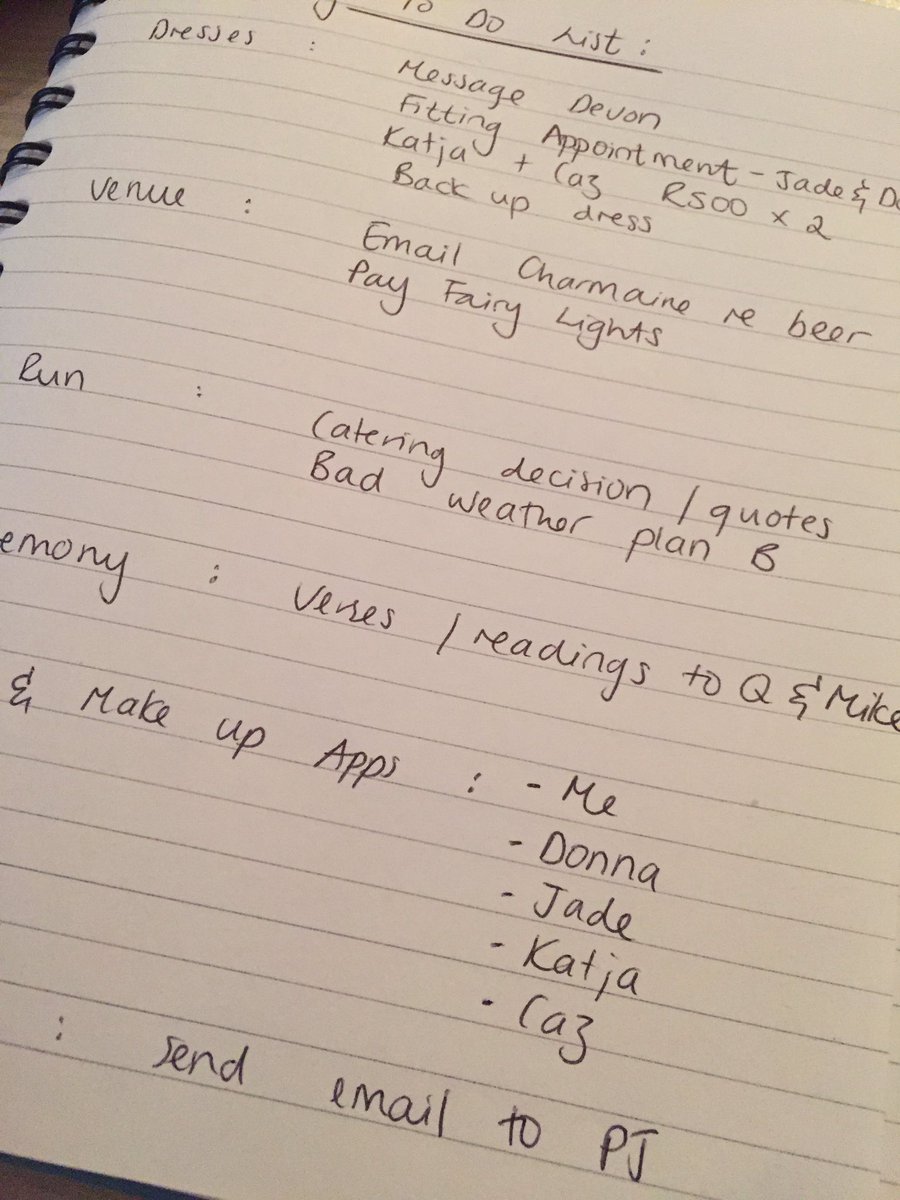 To Do List :
Dresses : Message Devon
Fitting Appointment - Jade &
Katja + Caz R500 x 2
Back up dress
Venue : Email Charmaine re beer
Pay Fairy Lights
Run : Catering decision / quotes
Bad weather plan B
emony : Verses / readings to Q & Mike
& Make up Apps : - Me
- Donna
- Jade
- Katja
- Caz
: send email to PJ